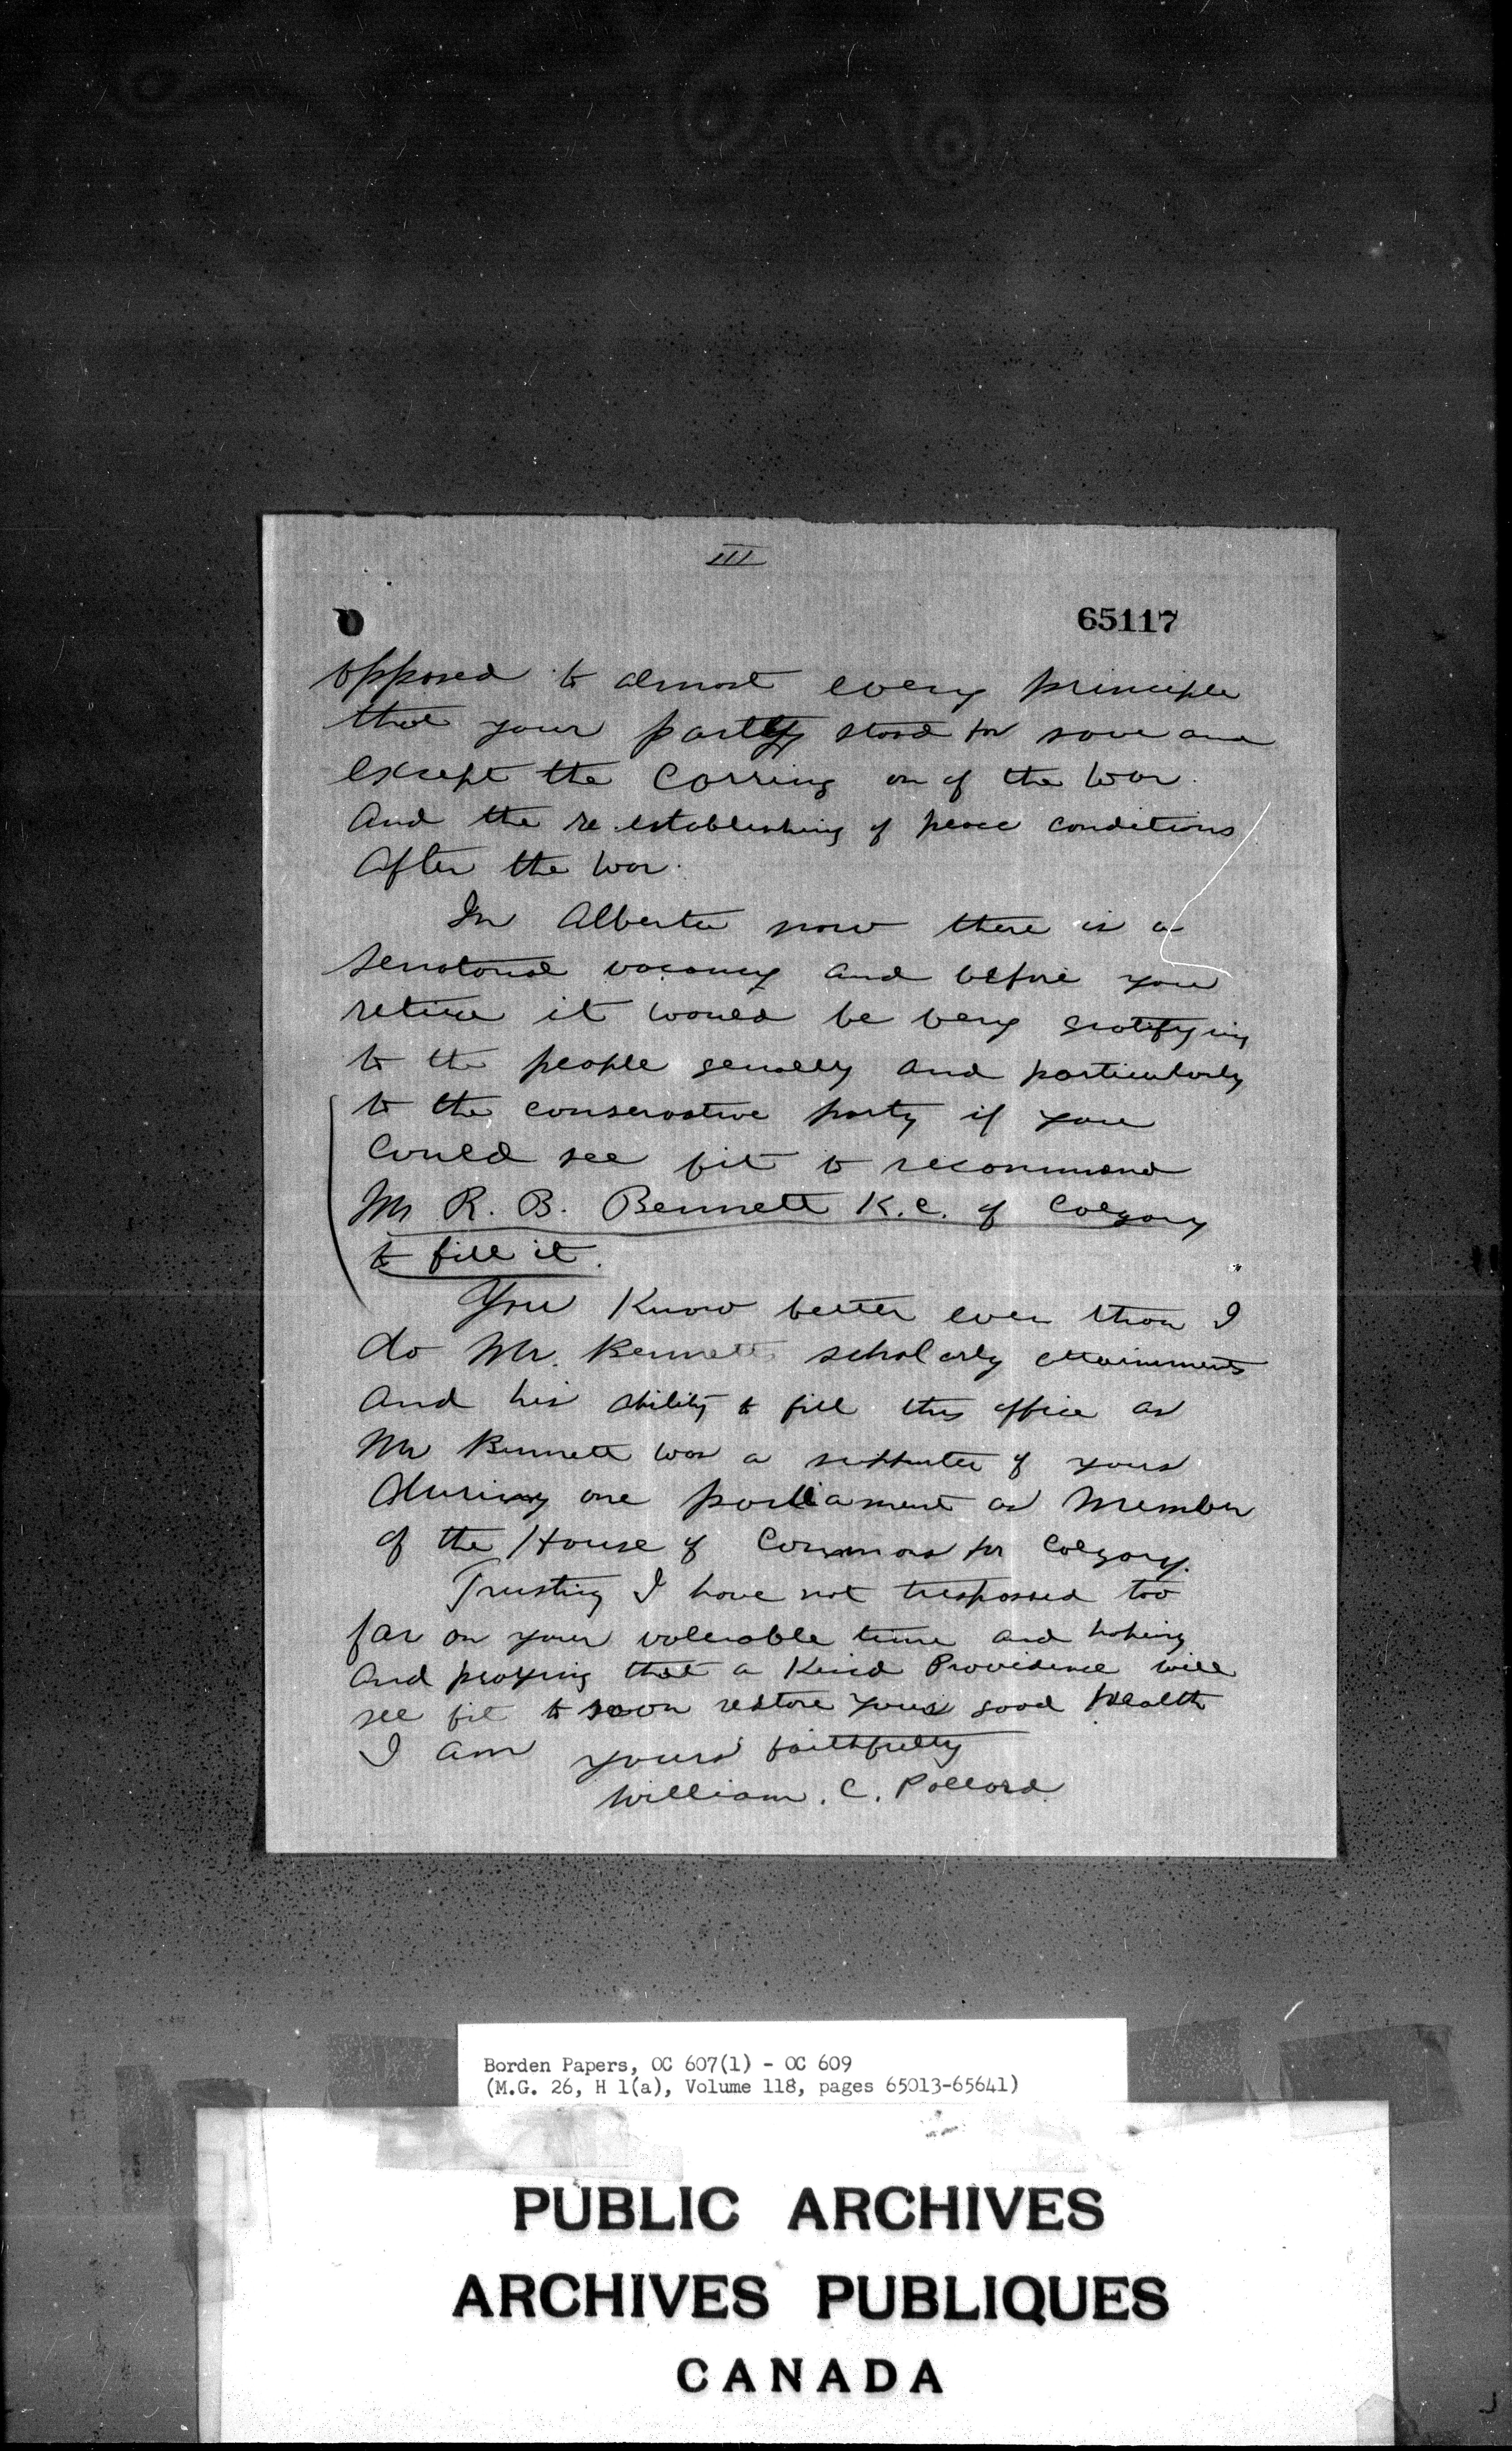 III
65117
opposed to almost every principle
that your party stood for save and
except the carring on of the war.
And the re-establishing of peace conditions
after the war.
In Alberta now there is a
senatorial vacancy and before you
retire it would be very gratifying
to the people generally and particularly
to the conservative party if you
could see fit to recommend
Mr R. B. Bennett K.C. of Calgary
to fill it.
You know better even than I
do Mr. Bennetts scholarly attainments
and his ability to fill this office as
Mr Bennett was a supporter of yours
during one parliament as member
of the House of Commons for Calgary.
Trusting I have not trespassed too
far on your valuable time and hoping
and praying that a Kind Providence will
see fit to soon restore your good health
I am yours faithfully
William. C. Pollard
Borden Papers, OC 607(1) - OC 609
(M.G. 26, H 1(a), Volume 118, pages 65013-65641)
PUBLIC ARCHIVES
ARCHIVES PUBLIQUES
CANADA